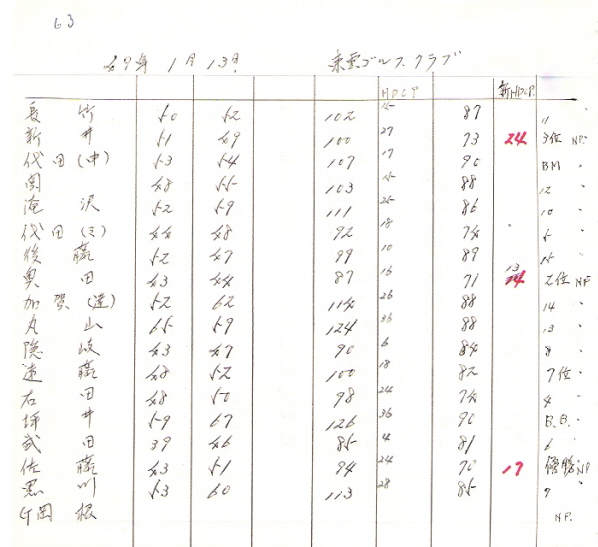 63
49年 1月 13日 東雲ゴルフクラブ
HDCP 新HDCP
長 竹 50 52 102 15 87 11 〃
新 井 51 49 100 27 73 24 3位 NP.
代田(申) 53 54 107 17 90 BM 〃
関 48 55 103 15 88 12 〃
滝 沢 52 59 111 25 86 10 〃
代田(ミ) 44 48 92 18 74 5 〃
後 藤 52 47 99 10 89 15 〃
奥 田 43 44 87 16 71 13 14 2位 NP
加 賀(達) 52 62 114 26 88 14 〃
丸 山 65 59 124 36 88 13 〃
隠 岐 43 47 90 6 84 8 〃
遠 藤 48 52 100 18 82 7位 〃
右 田 48 50 98 24 74 4 〃
坪 井 59 67 126 36 90 B.B. 〃
武 田 39 46 85 4 81 6 〃
佐 藤 43 51 94 24 70 17 優勝 NP
黒 川 53 60 113 28 85 9 〃
片岡 根 NP.